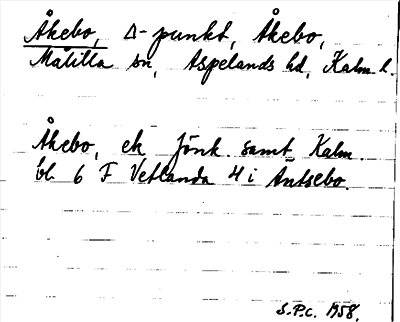 Åkebo, Δ-punkt, Åkebo,
Målilla sn, Aspelands hd, Kalm. l.
Åkebo, ek Jönk. samt Kalm.
bl. 6 F Vetlanda 4 i Antsebo.
S.P.C. 1958.